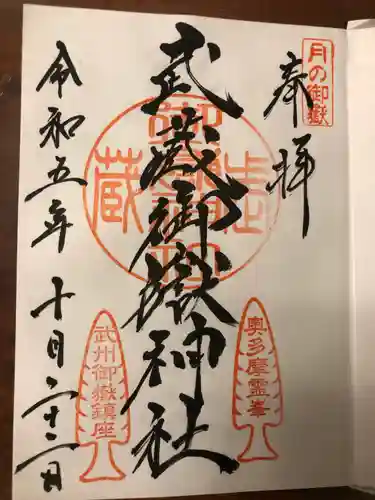 月の御嶽
奉拝
武蔵御嶽神社
奥多摩霊峯
武州御嶽鎮座
令和五年十月二十二日